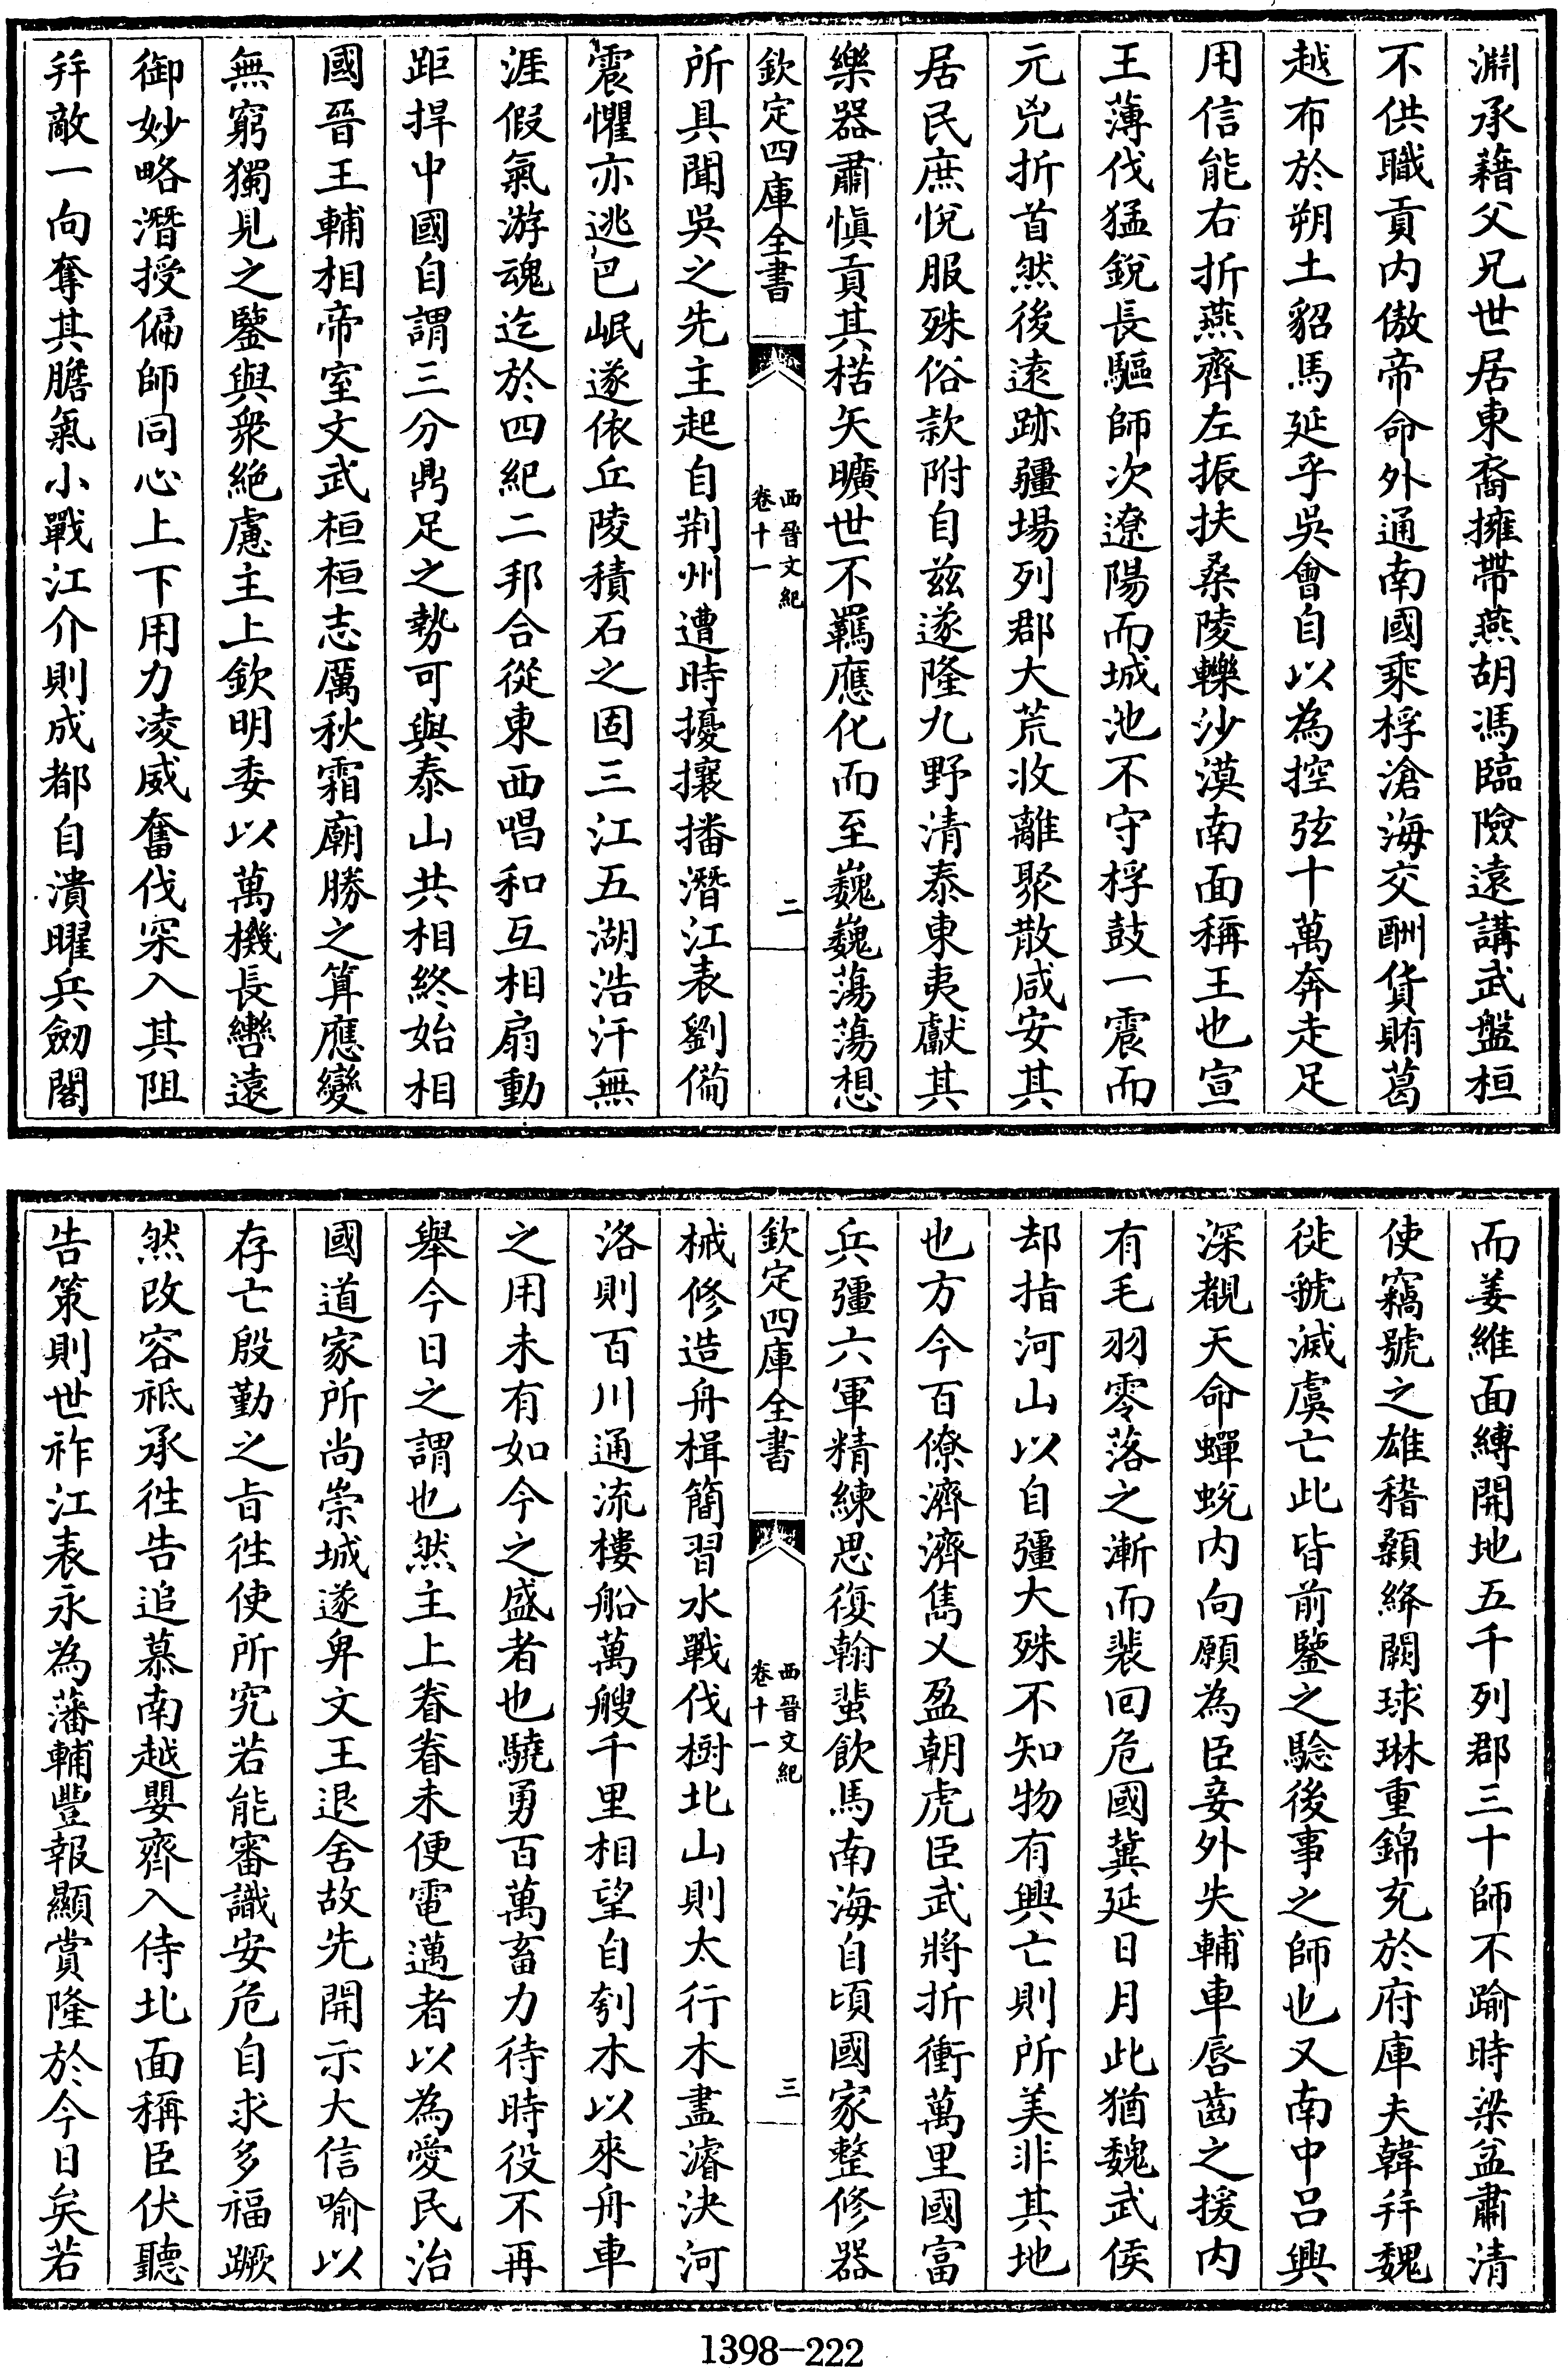 淵承藉父兄世居東裔擁帶燕胡馮臨險遠講武盤桓
不供職貢内傲帝命外通南國乘桴滄海交酬貨賄葛
越布於朔土貂馬延乎吳會自以為控弦十萬奔走足
用信能右折燕齊左振扶桑陵轢沙漠南面稱王也宣
王薄伐猛銳長驅師次遼陽而城池不守桴鼓一震而
元兇折首然後逺跡疆場列郡大荒收離聚散咸安其
居民庶悅服殊俗款附自兹遂隆九野清泰東夷獻其
樂器肅愼貢其楛矢曠世不羈應化而至巍巍蕩蕩想
欽定四庫全書
西晉文紀
卷十一
二
所具聞吳之先主起自荆州遭時擾攘播潛江表劉備
震懼亦逃巴岷遂依丘陵積石之固三江五湖浩汗無
涯假氣游魂迄於四紀二邦合從東西唱和互相扇動
距捍中國自謂三分鼎足之勢可與泰山共相終始相
國晉王輔相帝室文武桓桓志厲秋霜廟勝之算應變
無窮獨見之鑒與衆絶慮主上欽明委以萬機長轡遠
御妙略潛授偏師同心上下用力凌威奮伐罙入其阻
幷敵一向奪其膽氣小戰江介則成都自潰曜兵劒閣
而姜維面縛開地五千列郡三十師不踰時梁益肅清
使竊號之雄稽顙絳闕球琳重錦充於府庫夫韓幷魏
徙虢滅虞亡此皆前鑒之驗後事之師也又南中吕興
深覩天命蟬蛻内向願為臣妾外失輔車唇齒之援内
有毛羽零落之漸而裴回危國冀延日月此猶魏武侯
却指河山以自彊大殊不知物有興亡則所美非其地
也方今百僚濟濟雋乂盈朝虎臣武將折衝萬里國富
兵彊六軍精練思復翰蜚飲馬南海自頃國家整修器
欽定四庫全書
西晉文紀
卷十一
三
械修造舟楫簡習水戰伐樹北山則太行木盡濬決河
洛則百川通流樓船萬艘千里相望自刳木以來舟車
之用未有如今之盛者也驍勇百萬畜力待時役不再
舉今日之謂也然主上眷眷未便電邁者以為愛民治
國道家所尚崇城遂卑文王退舍故先開示大信喻以
存亡殷勤之旨徃使所究若能審識安危自求多福蹶
然改容祗承徃告追慕南越嬰齊入侍北面稱臣伏聽
告策則世祚江表永為藩輔豐報顯賞隆於今日矣若
1398-222